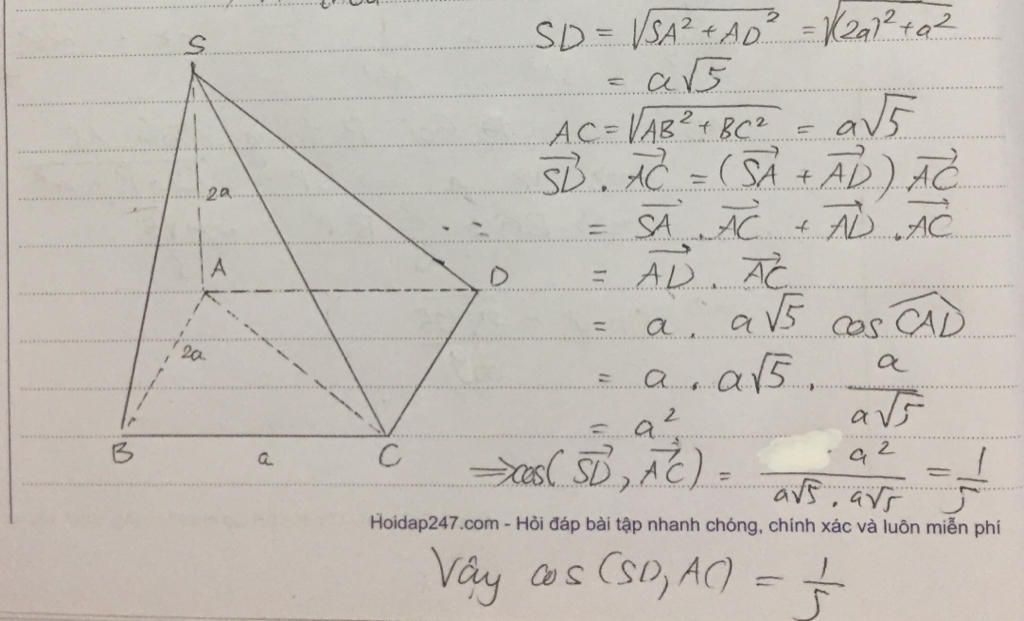 S
2a
A
D
2a
B
a
C
SD = √(SA² + AD²) = √((2a)² + a²)
= a√5
AC = √(AB² + BC²) = a√5
\vec{SD} . \vec{AC} = (\vec{SA} + \vec{AD}) \vec{AC}
= \vec{SA} . \vec{AC} + \vec{AD} . \vec{AC}
= \vec{AD} . \vec{AC}
= a . a√5 cos \widehat{CAD}
= a . a√5 . a/(a√5)
= a²
⇒ cos(\vec{SD}, \vec{AC}) = a²/(a√5 . a√5) = 1/5
Hoidap247.com - Hỏi đáp bài tập nhanh chóng, chính xác và luôn miễn phí
Vậy cos (SD, AC) = 1/5